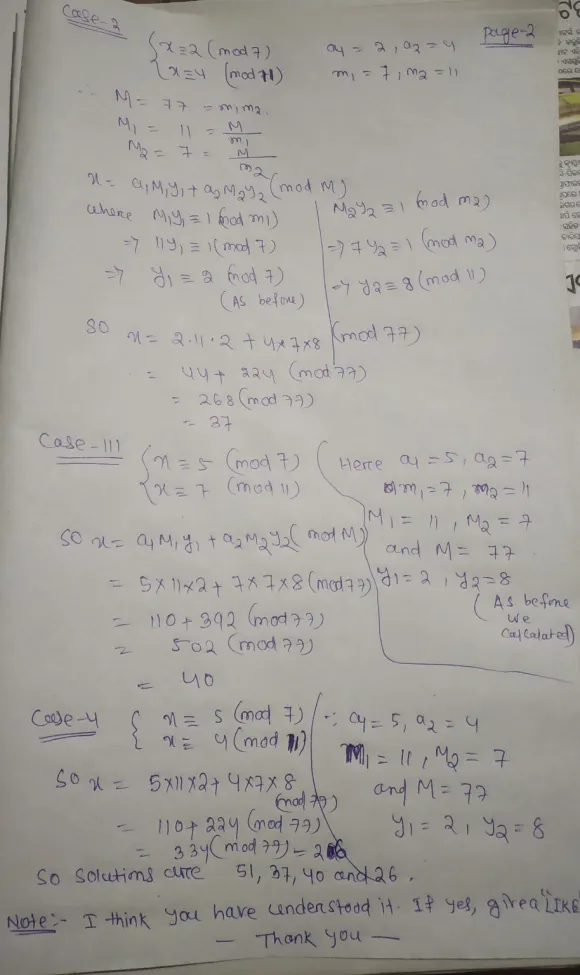 Case-2
Page-2
{ x ≡ 2 (mod 7)
x ≡ 4 (mod 11)
a1 = 2, a2 = 4
m1 = 7, m2 = 11
∴ M = 77 = m1m2.
M1 = 11 = M/m1
M2 = 7 = M/m2
x = a1M1y1 + a2M2y2 (mod M)
where M1y1 ≡ 1 (mod m1)
⇒ 11y1 ≡ 1 (mod 7)
⇒ y1 ≡ 2 (mod 7)
(As before)
M2y2 ≡ 1 (mod m2)
⇒ 7y2 ≡ 1 (mod m2)
⇒ y2 ≡ 8 (mod 11)
So x = 2·11·2 + 4×7×8 (mod 77)
= 44 + 224 (mod 77)
= 268 (mod 77)
= 37
Case-III
{ x ≡ 5 (mod 7)
x ≡ 7 (mod 11)
Here a1 = 5, a2 = 7
m1 = 7, m2 = 11
M1 = 11, M2 = 7
and M = 77
y1 = 2, y2 = 8
(As before
we
calculated)
So x = a1M1y1 + a2M2y2 (mod M)
= 5×11×2 + 7×7×8 (mod 77)
= 110 + 392 (mod 77)
= 502 (mod 77)
= 40
Case-4
{ x ≡ 5 (mod 7)
x ≡ 4 (mod 11)
∵ a1 = 5, a2 = 4
M1 = 11, M2 = 7
and M = 77
y1 = 2, y2 = 8
So x = 5×11×2 + 4×7×8
(mod 77)
= 110 + 224 (mod 77)
= 334 (mod 77) = 26
So solutions are 51, 37, 40 and 26.
Note:- I think you have understood it. If yes, give a "LIKE
— Thank you —